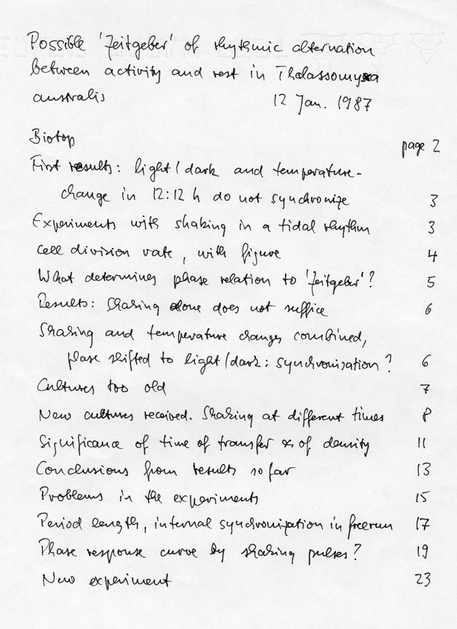 Possible 'Zeitgeber' of rhythmic alternation
between activity and rest in Thalassomyxa
australis 12 Jan. 1987
Biotop page 2
First results: light/dark and temperature-
change in 12:12 h do not synchronize 3
Experiments with shaking in a tidal rhythm 3
Cell division rate, with figure 4
What determines phase relation to 'Zeitgeber'? 5
Results: Shaking alone does not suffice 6
Shaking and temperature changes combined,
phase shifted to light/dark: synchronization? 6
Cultures too old 7
New cultures received. Shaking at different times 8
Significance of time of transfer of density 11
Conclusions from results so far 13
Problems in the experiments 15
Period length, internal synchronization in freerun 17
Phase response curve by shaking pulses? 19
New experiment 23